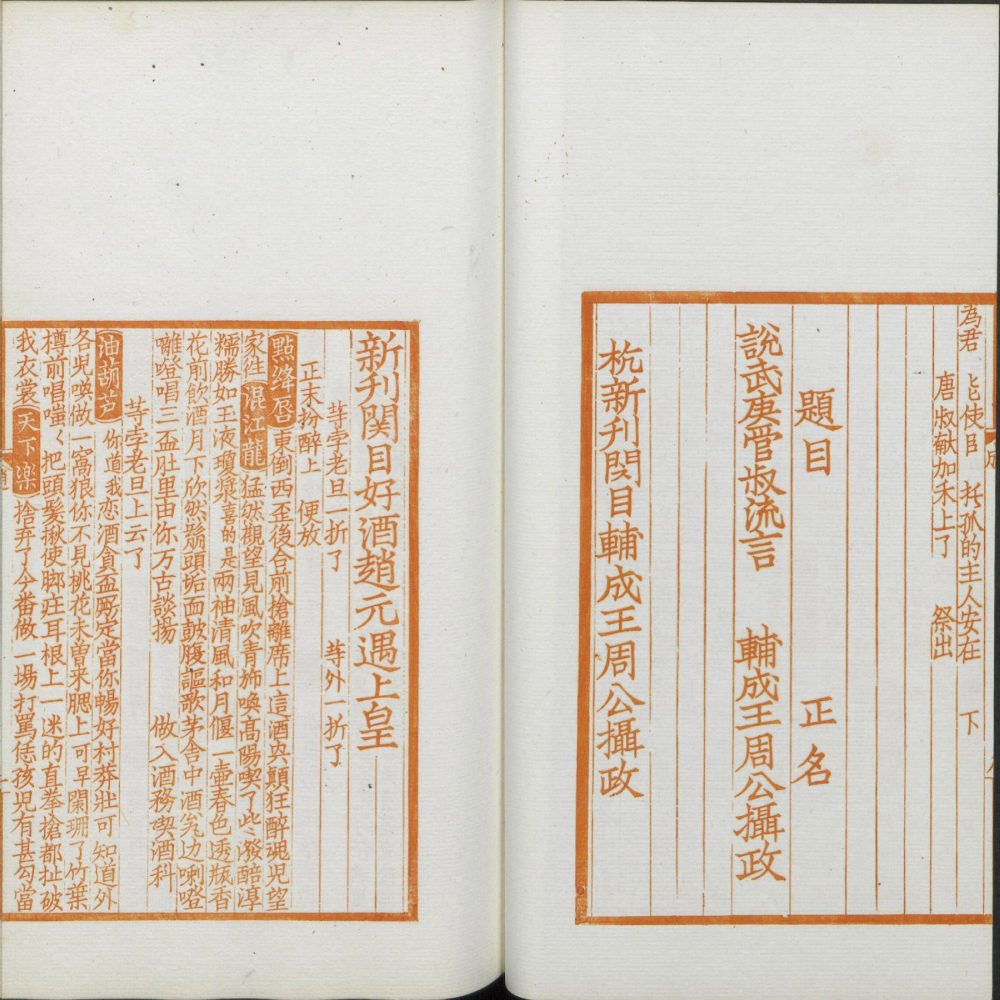 為君 〻使臣 托孤的主人安在 下
唐叔献加禾上了 祭出
題目 正名
説武庚管叔流言 輔成王周公攝政
杭新刋関目輔成王周公攝政
新刋関目好酒趙元遇上皇
等孛老旦一折了 等外一折了
正末扮醉上 便放
點絳唇 東倒西歪後合前搶離席上這酒央顛狂醉魂児望
家往 混江龍 猛然觀望見風吹青斾喚高陽喫了此〻潑醅淳
糯勝如玉液瓊漿喜的是兩袖清風和月偃一壺春色透瓶香
花前飲酒月下欣然蓬頭垢面鼓腹謳歌茅舍中酒瓮边唎噔
囉噔唱三盃肚里由你万古談揚 做入酒務喫酒科
等孛老旦上云了
油葫芦 你道我恋酒貪盃厮定當你暢好村莽壯可知道外
名児喚做一窩狼你不見桃花未曽来腮上可早闌珊了竹葉
樽前唱嗤〻把頭髮揪使脚庄耳根上一迷的直拳搶都扯破
我衣裳 天下樂 捨弃了今番做一場打罵恁孩児有甚勾當